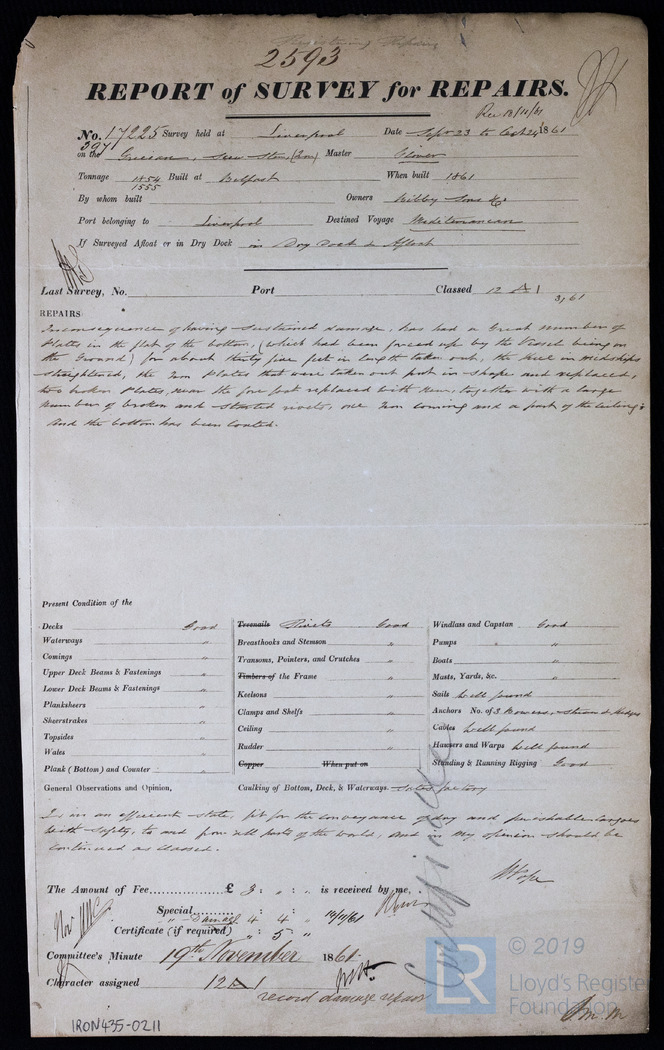 2593
REPORT of SURVEY for REPAIRS.
Rec 18/11/61
No. 17225 Survey held at Liverpool Date Sept 23 to Oct 24 1861
397 on the Grecian, Screw Stem, (Iron) Master Glover
Tonnage 1854 Built at Belfast When built 1861
1555
By whom built Owners Bibby Sons & Co
Port belonging to Liverpool Destined Voyage Mediterranean
If Surveyed Afloat or in Dry Dock in Dry Dock & Afloat
Last Survey, No. Port Classed 12 A 1
3,61
REPAIRS
In consequence of having sustained damage, has had a Great number of
Plates in the flat of the bottom, (which had been forced up by the Vessel being on
the Ground) for about thirty five feet in length taken out, the Keel in midships
straightened, the Iron Plates that were taken out put in shape and replaced,
two broken Plates, near the fore foot replaced with New, together with a large
number of broken and started rivets, one Iron coming and a part of the ceiling;
and the bottom has been coated.
Present Condition of the
Decks Good Treenails Rivets Good Windlass and Capstan Good
Waterways " Breasthooks and Stemson " Pumps " "
Comings " Transoms, Pointers, and Crutches " Boats "
Upper Deck Beams & Fastenings " Timbers of the Frame " Masts, Yards, &c. "
Lower Deck Beams & Fastenings " Keelsons " Sails Well found
Planksheers " Clamps and Shelfs " Anchors No. of 3 Bowers, Stream & Kedges
Sheerstrakes " Ceiling " Cables Well found
Topsides " Rudder " Hawsers and Warps Well found
Wales " Copper When put on Standing & Running Rigging Good
Plank (Bottom) and Counter "
General Observations and Opinion, Caulking of Bottom, Deck, & Waterways. Satisfactory
Is in an efficient state, fit for the conveyance of dry and perishable cargoes
with safety, to and from all parts of the world, and in my opinion should be
continued as classed.
The Amount of Fee £ 3 : " : " is received by me,
Special
" Damage 4 4 " 16/11/61
Certificate (if required) " : 5 : "
Committee's Minute 19th November 1861
Character assigned 12 A 1
record damage repair
IRON435-0211
LR
© 2019
Lloyd's Register
Foundation